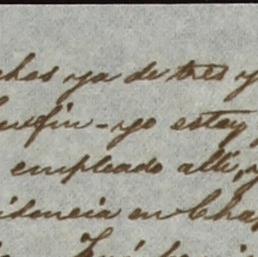 ya de tres y
en fin - yo estoy
empleado allí, y
idencia en Cha